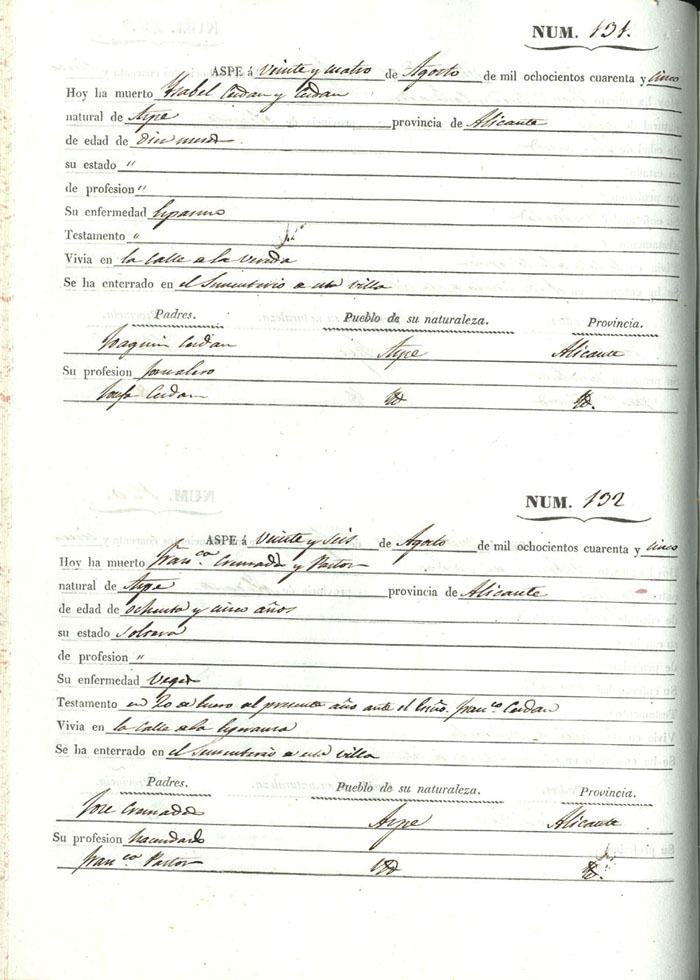 NUM. 131.
ASPE á Veinte y cuatro de Agosto de mil ochocientos cuarenta y cinco
Hoy ha muerto Ysabel Cerdan y Cerdan
natural de Aspe provincia de Alicante
de edad de
su estado "
de profesion "
Su enfermedad
Testamento "
Vivia en la Calle de la
Se ha enterrado en el Sementerio de esta villa
Padres. Pueblo de su naturaleza. Provincia.
Joaquin Cerdan Aspe Alicante
Su profesion Jornalero
Josefa Cerdan Yd Yd.
NUM. 132
ASPE á Veinte y seis de Agosto de mil ochocientos cuarenta y cinco
Hoy ha muerto Franca. Cremades y Pastor
natural de Aspe provincia de Alicante
de edad de ochenta y cinco años
su estado soltera
de profesion "
Su enfermedad Vegez
Testamento en 20 de Enero del presente año ante el Esño. Franco. Cerdan
Vivia en la Calle de la
Se ha enterrado en el Sementerio de esta villa
Padres. Pueblo de su naturaleza. Provincia.
Jose Cremades Aspe Alicante
Su profesion hacendado
Franca. Pastor Yd Yd.